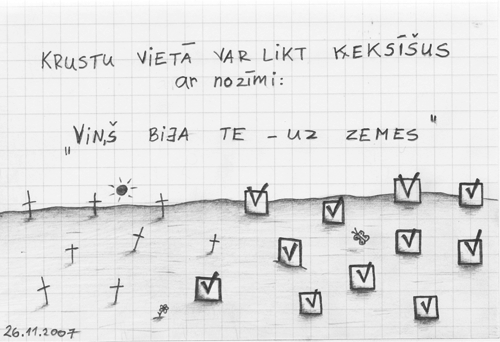 KRUSTU VIETĀ VAR LIKT ĶEKSĪŠUS
ar nozīmi:
„VIŅŠ BIJA TE - UZ ZEMES"
26.11.2007